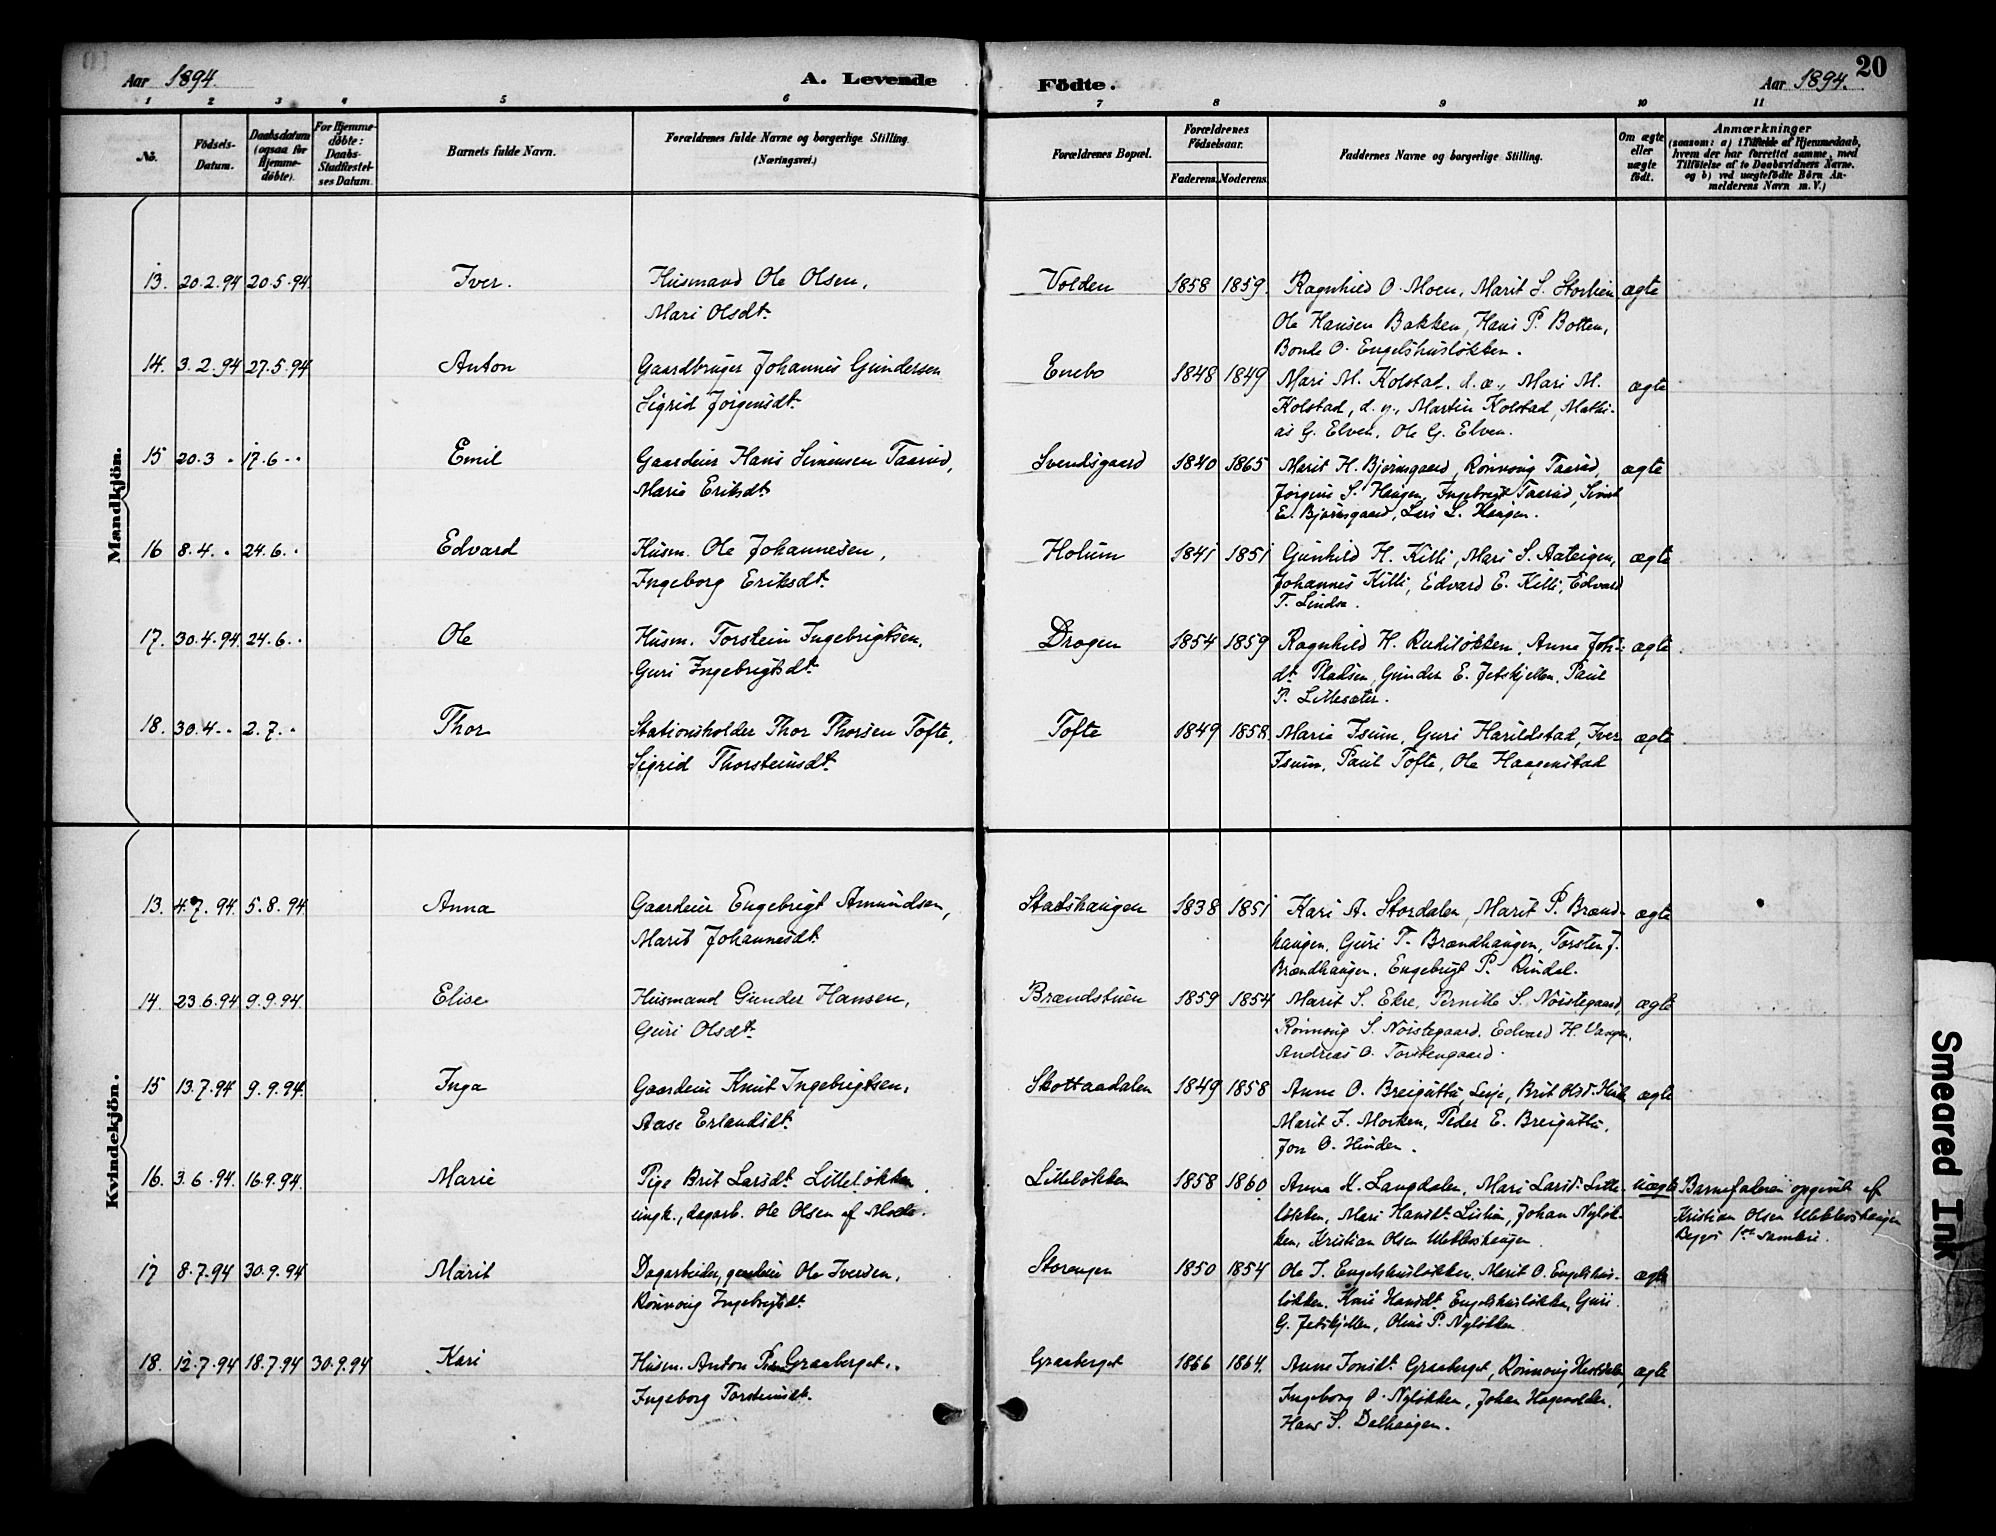 Aar 1894. A. Levende Födte. Aar 1894. 20
1 2 3 4 5 6 7 8 9 10 11
No. Födsels-Datum. Daabsdatum (ogsaa for Hjemme-döbte). For Hjemme-döbte: Daabs-Stadfæstel-ses Datum. Barnets fulde Navn. Forældrenes fulde Navne og borgerlige Stilling. (Næringsvei.) Forældrenes Bopæl. Forældrenes Födselsaar. Faderens. Moderens. Faddernes Navne og borgerlige Stilling. Om ægte eller uægte födt. Anmærkninger
(saasom: a) i Tilfælde af Hjemmedaab,
hvem der har forrettet samme, med
Tilföielse af to Daabsvidners Navne.
og b) ved uægtefödte Börn An-
melderens Navn m. V.)
Mandkjön.
13. 20.2.94 20.5.94. Iver. Husmand Ole Olsen, Volden 1858 1859. Ragnhild O. Moen, Marit S. Storlien ægte
Mari Olsdt. Ole Hansen Bakken, Hans P. Botten,
Bonde O. Engelshusløkken.
14. 3.2.94 27.5.94 Anton Gaardbruger Johannes Gundersen Enebo 1848 1849 Mari M. Kolstad, d.æ., Mari M. ægte
Sigrid Jørgensdt. Kolstad, d.y., Martin Kolstad, Mathi-
as G. Elven, Ole G. Elven.
15 20.3 . 17.6 . . Emil Gaardeier Hans Simensen Taarud, Svendsgaard 1840 1865 Marit H. Bjørnsgaard, Rønnoug Taarud, ægte
Marie Eriksdt. Jørgine S. Haugen, Ingebrigt Taarud, Simen
E. Bjørnsgaard, Lars L. Haugen.
16 8.4. . 24.6. . Edvard Husm. Ole Johannesen, Holum 1841 1851 Gunhild H. Killi, Mari S. Aateigen, ægte
Ingeborg Eriksdt. Johannes Killi, Edvard E. Killi, Edvard
T. Lindsø.
17. 30.4.94. 24.6. . Ole Husm. Torstein Ingebrigtsen, Drogen 1854 1859 Ragnhild H. Rudiløkken, Anne Joh- ægte
Guri Ingebrigtsdt. dt. Pladsen, Gunder E. Jetskjellen, Paul
P. Lillesæter.
18. 30.4. . 2.7. . Thor Stationsholder Thor Thorsen Tofte, Tofte 1849 1858. Marie Isum, Guri Harildstad, Iver ægte
Sigrid Thorsteinsdt. Isum, Paul Tofte, Ole Haagenstad
Kvindekjön.
13. 4.7.94. 5.8.94 Anna Gaardeier Engebrigt Amundsen, Stadshaugen 1838 1851 Kari A. Stordalen, Marit P. Brænd- ægte
Marit Johannesdt. haugen, Guri T. Brændhaugen, Torsten J.
Brændhaugen, Engebrigt P. Rindal.
14. 23.6.94 9.9.94 Elise Husmand Gunder Hansen, Brændstuen 1859 1854 Marit S. Ekre, Pernille S. Nøistegaard, ægte
Guri Olsdt. Rønnoug S. Nøistegaard, Edvard H. Vangen,
Andreas O. Torstengaard.
15 13.7.94 9.9.94. Inga Gaardeier Knut Ingebrigtsen, Skottaadalen 1849 1858 Anne O. Breigutu, Lesje, Brit Olsd. ægte
Aase Erlandsdt. Marit J. Morken, Peder E. Breigutu,
Jon O. Hinden.
16. 3.6.94. 16.9.94. Marie Pige Brit Larsdt. Lilleløkken Lilleløkken 1858 1860 Anna K. Langdalen, Mari Larsd. Lille- uægte Barnefaderen opgivet af
ungk., dagarb. Ole Olsen af løkken, Mari Hansdt. Listien, Johan Nyløk- Kristian Olsen Ulekleivhaugen
ken, Kristian Olsen Ulekleivhaugen
17 8.7.94 30.9.94 Marit Dagarbeider, Ole Iversen, Storengen 1850 1854 Ole I. Engelshusløkken, Marit O. Engelshus- ægte
Rønnoug Ingebrigtsdt. løkken, Kari Hansdt. Engelshusløkken, Guri
G. Jetskjellen, Oline P. Nyløkken
18. 12.7.94 18.7.94 30.9.94 Kari Husm. Anton Graaberget, Graaberget 1866 1864. Anne Jonsdt. Graaberget, Rønnoug ægte
Ingeborg Torsteinsdt. Ingeborg O. Nyløkken, Johan Hagevolden,
Hans S. Dalhaugen.
Smeared Ink